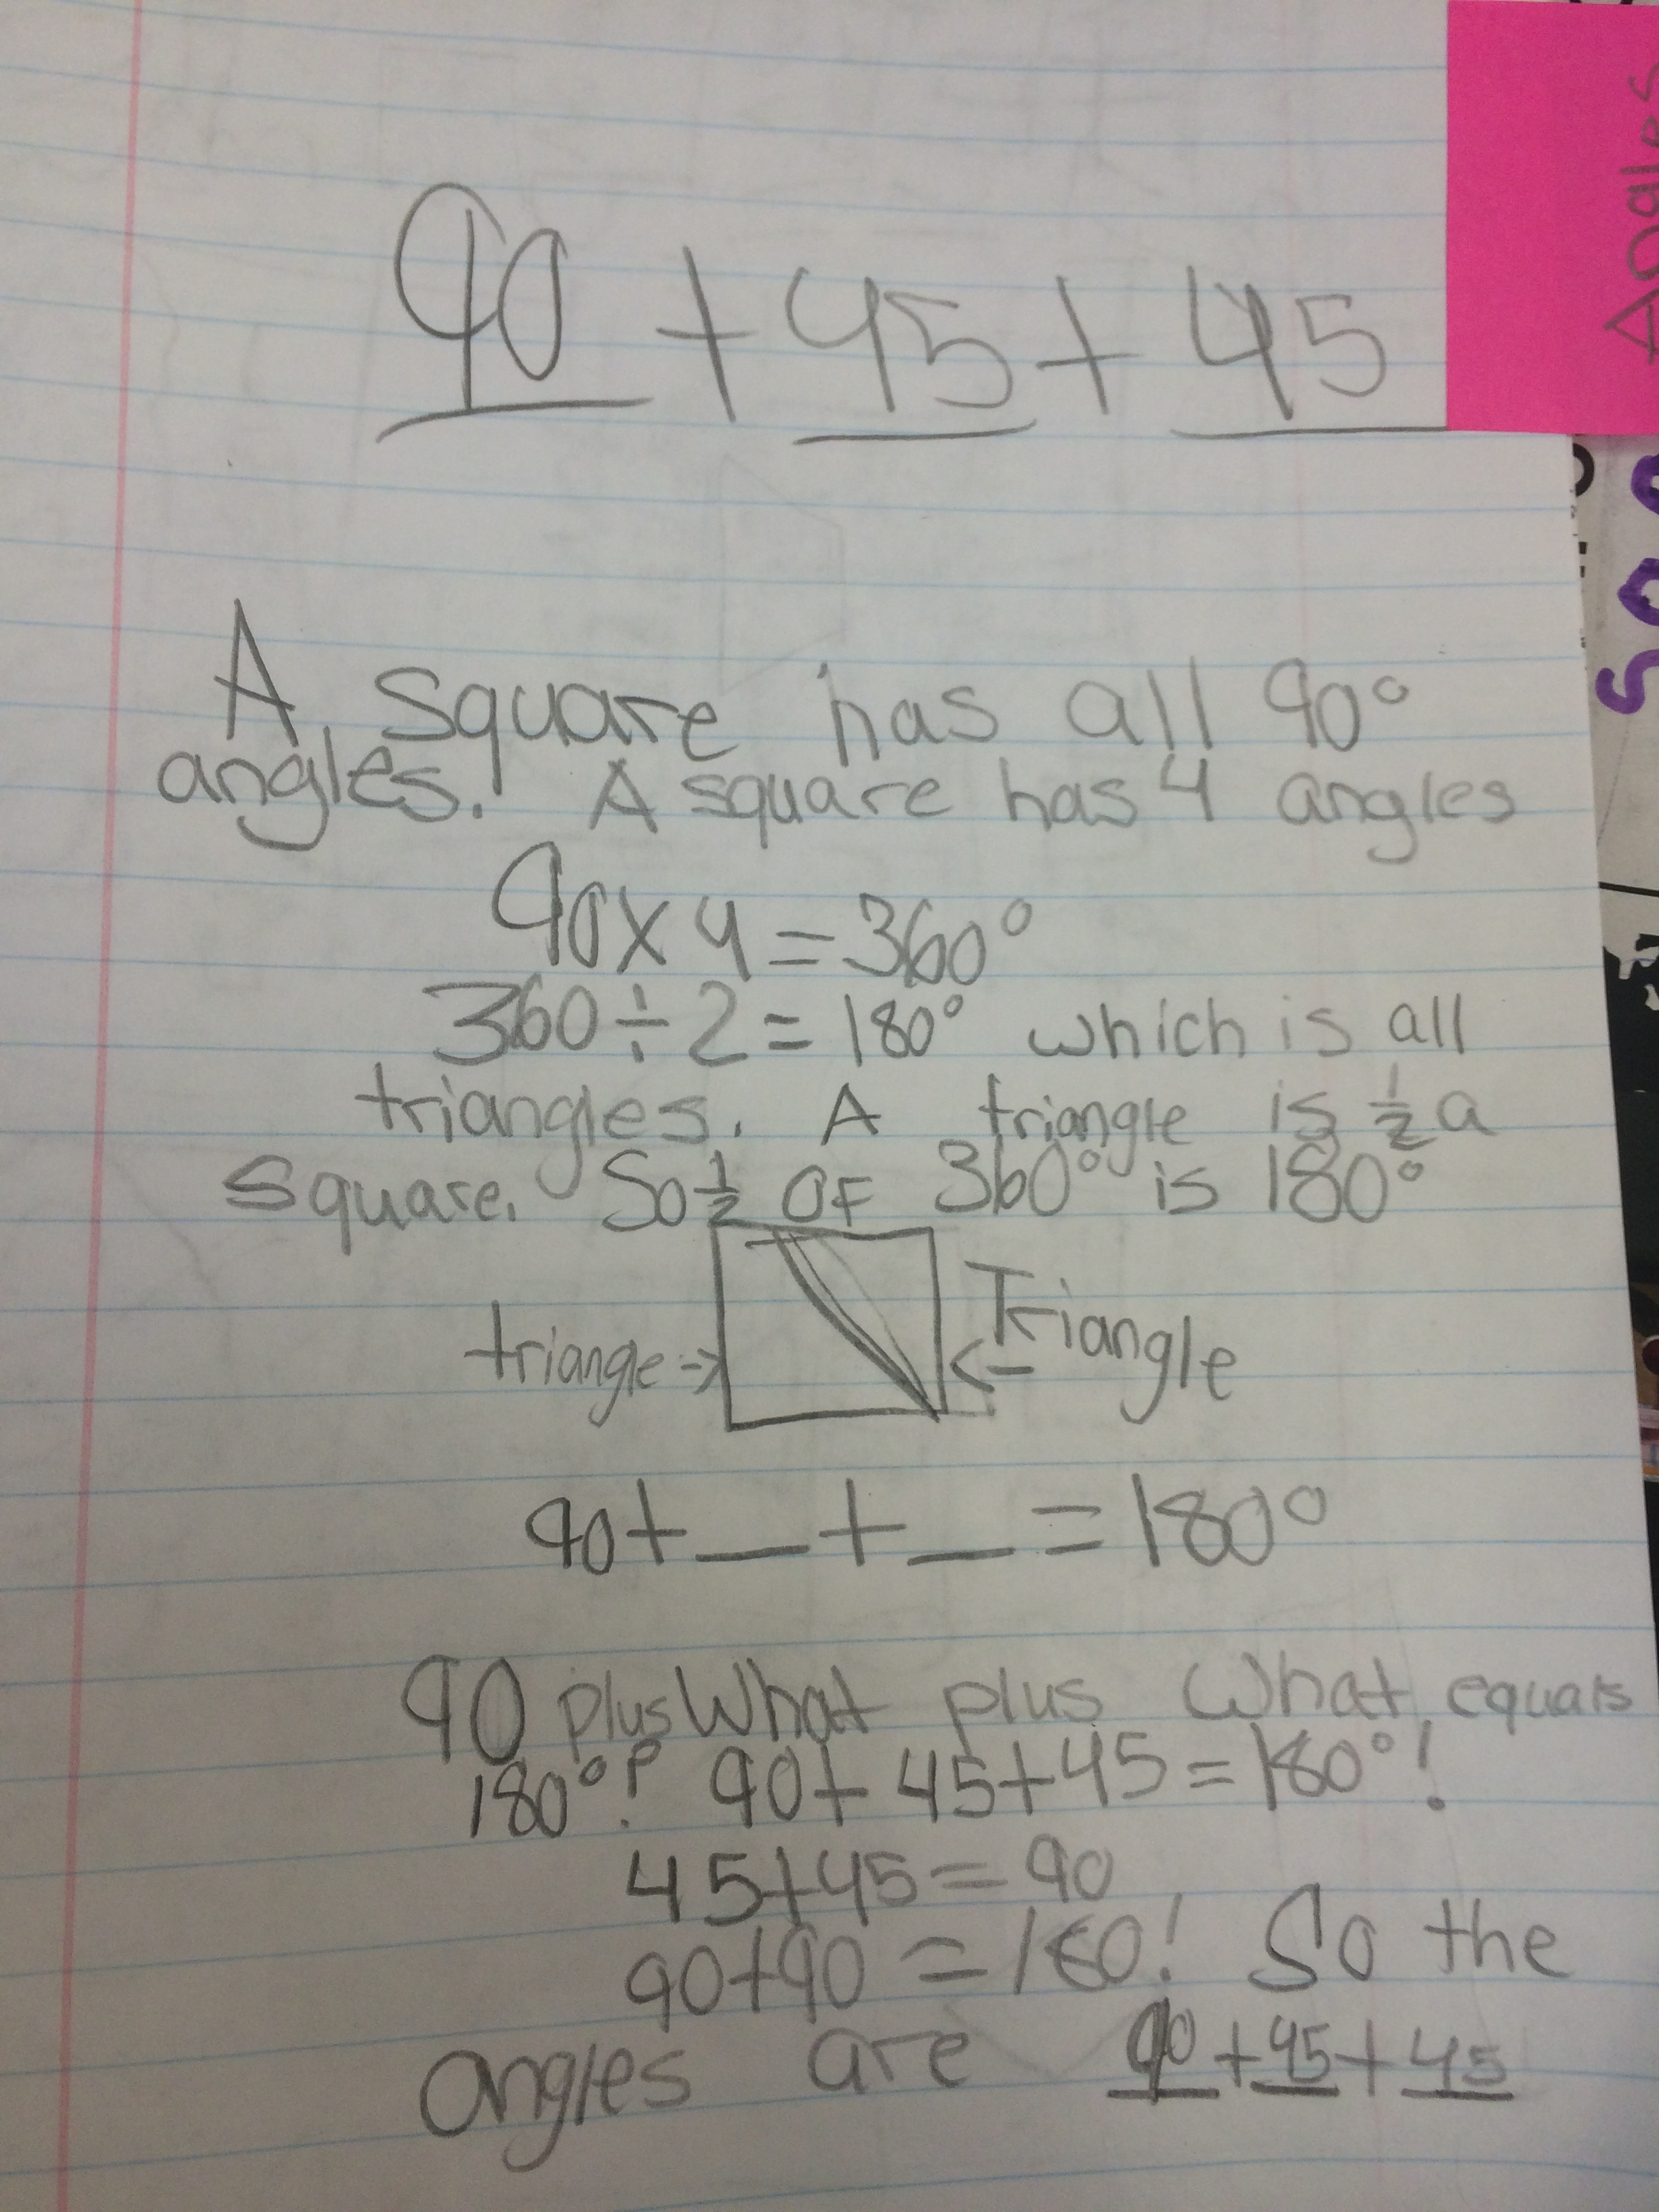 90 + 45 + 45
Angles
A square has all 90°
angles. A square has 4 angles
90 x 4 = 360°
360 ÷ 2 = 180° which is all
triangles. A triangle is ½ a
square. So ½ OF 360° is 180°
triangle -> <- Triangle
90 + __ + __ = 180°
90 plus What plus What equals
180°? 90 + 45 + 45 = 180°!
45 + 45 = 90
90 + 90 = 180! So the
angles are 90 + 45 + 45